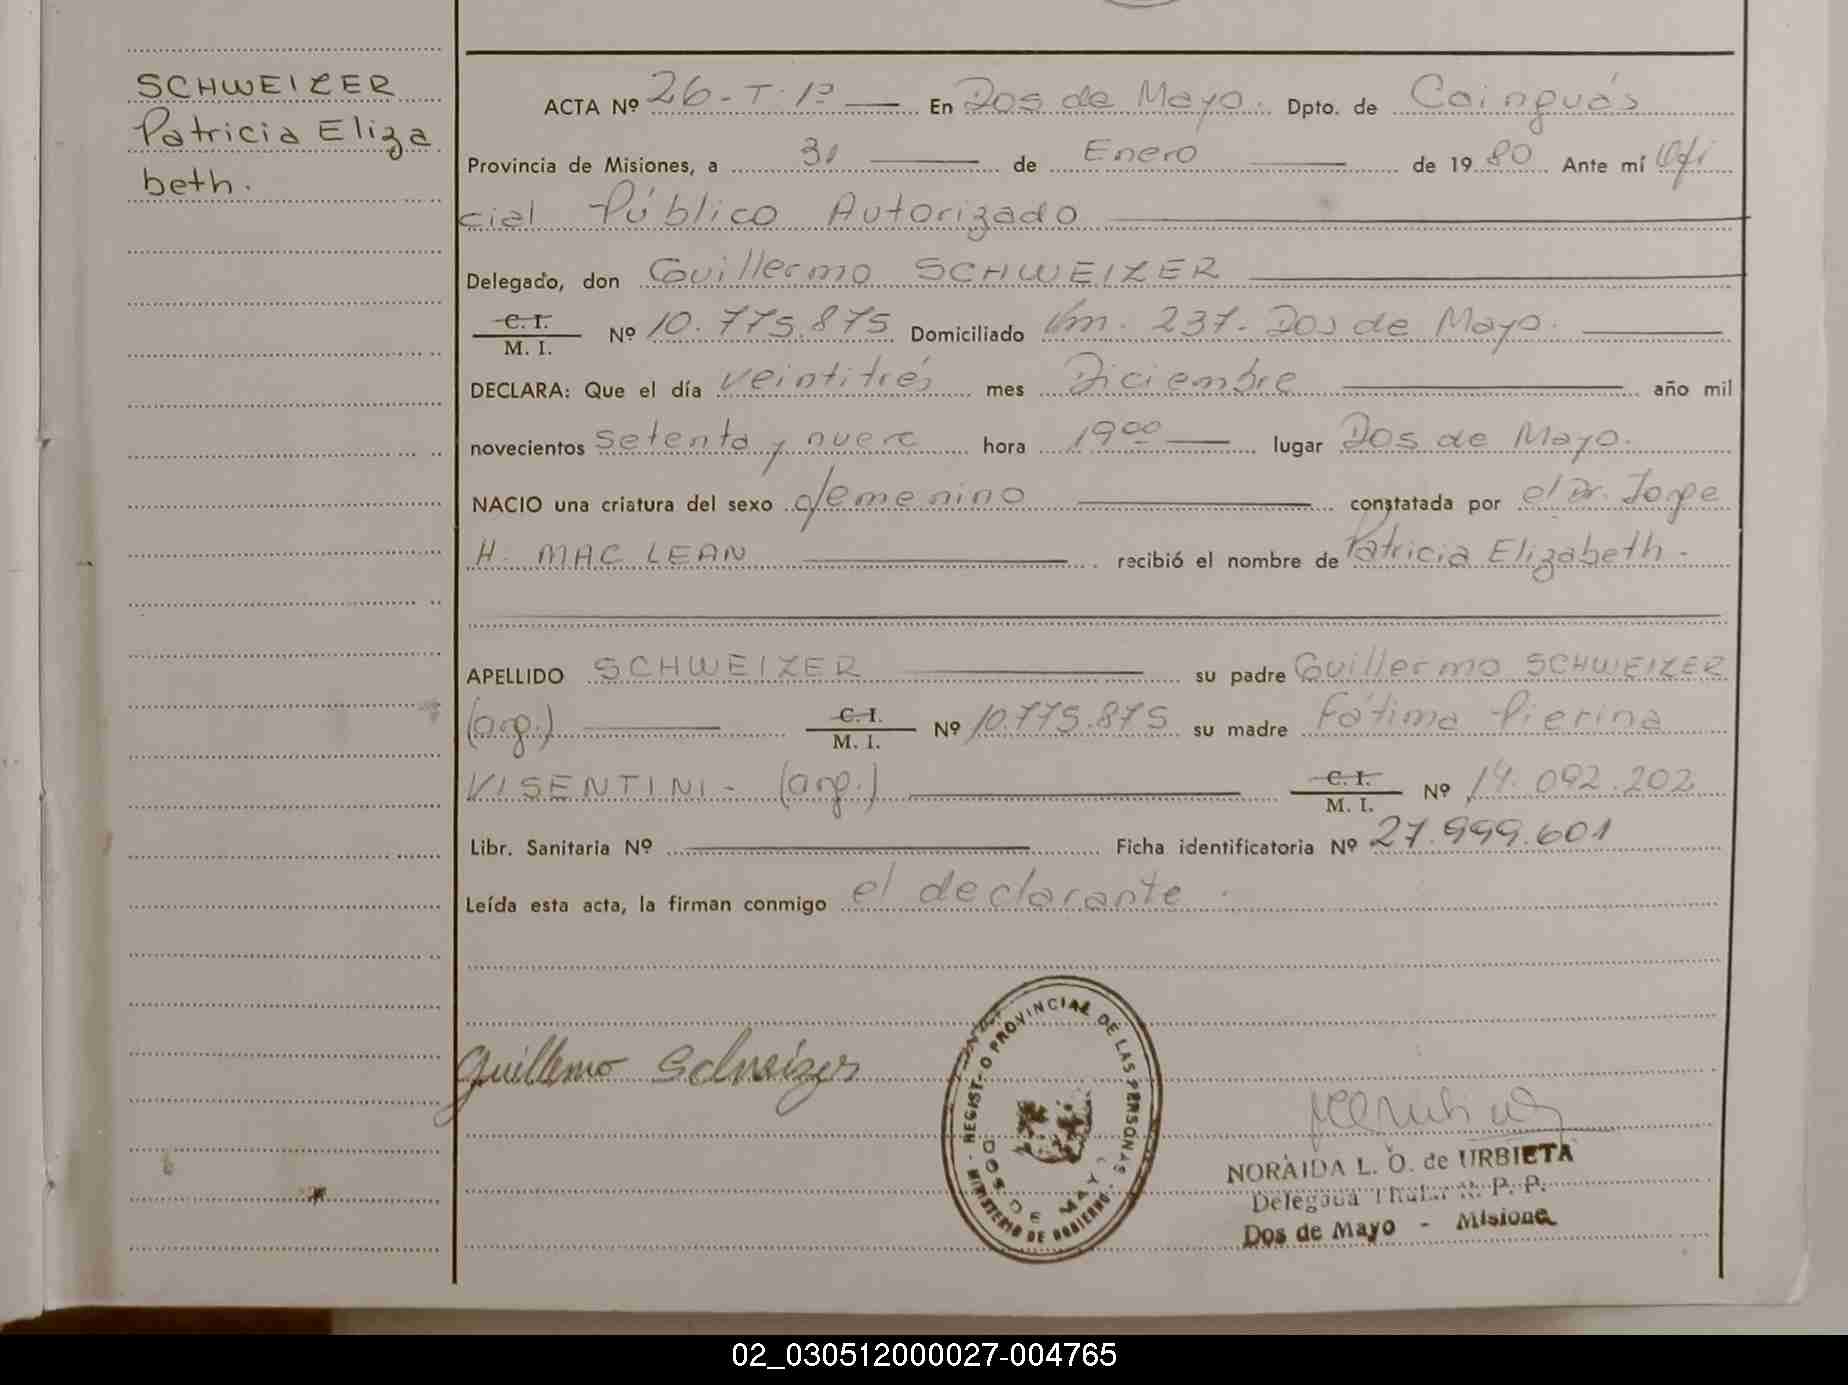 SCHWEIZER
Patricia Eliza
beth.
ACTA Nº 26-T.1º — En Dos de Mayo. Dpto. de Cainguás
Provincia de Misiones, a 31 — de Enero — de 1980 Ante mí Ofi
cial Público Autorizado
Delegado, don Guillermo SCHWEIZER
C. I.
M. I. Nº 10.775.875 Domiciliado Km. 237. Dos de Mayo.
DECLARA: Que el día veintitrés mes Diciembre año mil
novecientos setenta y nueve hora 19⁰⁰ lugar Dos de Mayo.
NACIO una criatura del sexo femenino constatada por el Dr. Jorge
H. MAC LEAN recibió el nombre de Patricia Elizabeth.
APELLIDO SCHWEIZER su padre Guillermo SCHWEIZER
(arg.) C. I.
M. I. Nº 10.775.875 su madre Fátima Pierina
VISENTINI- (arg.) C. I.
M. I. Nº 14.092.202
Libr. Sanitaria Nº Ficha identificatoria Nº 27.999.601
Leída esta acta, la firman conmigo el declarante.
Guillermo Schweizer
REGISTRO PROVINCIAL DE LAS PERSONAS
DOS DE MAYO
MINISTERIO DE GOBIERNO
NORAIDA L. O. de URBIETA
Delegada Titular R. P. P.
Dos de Mayo - Misiones
02_030512000027-004765